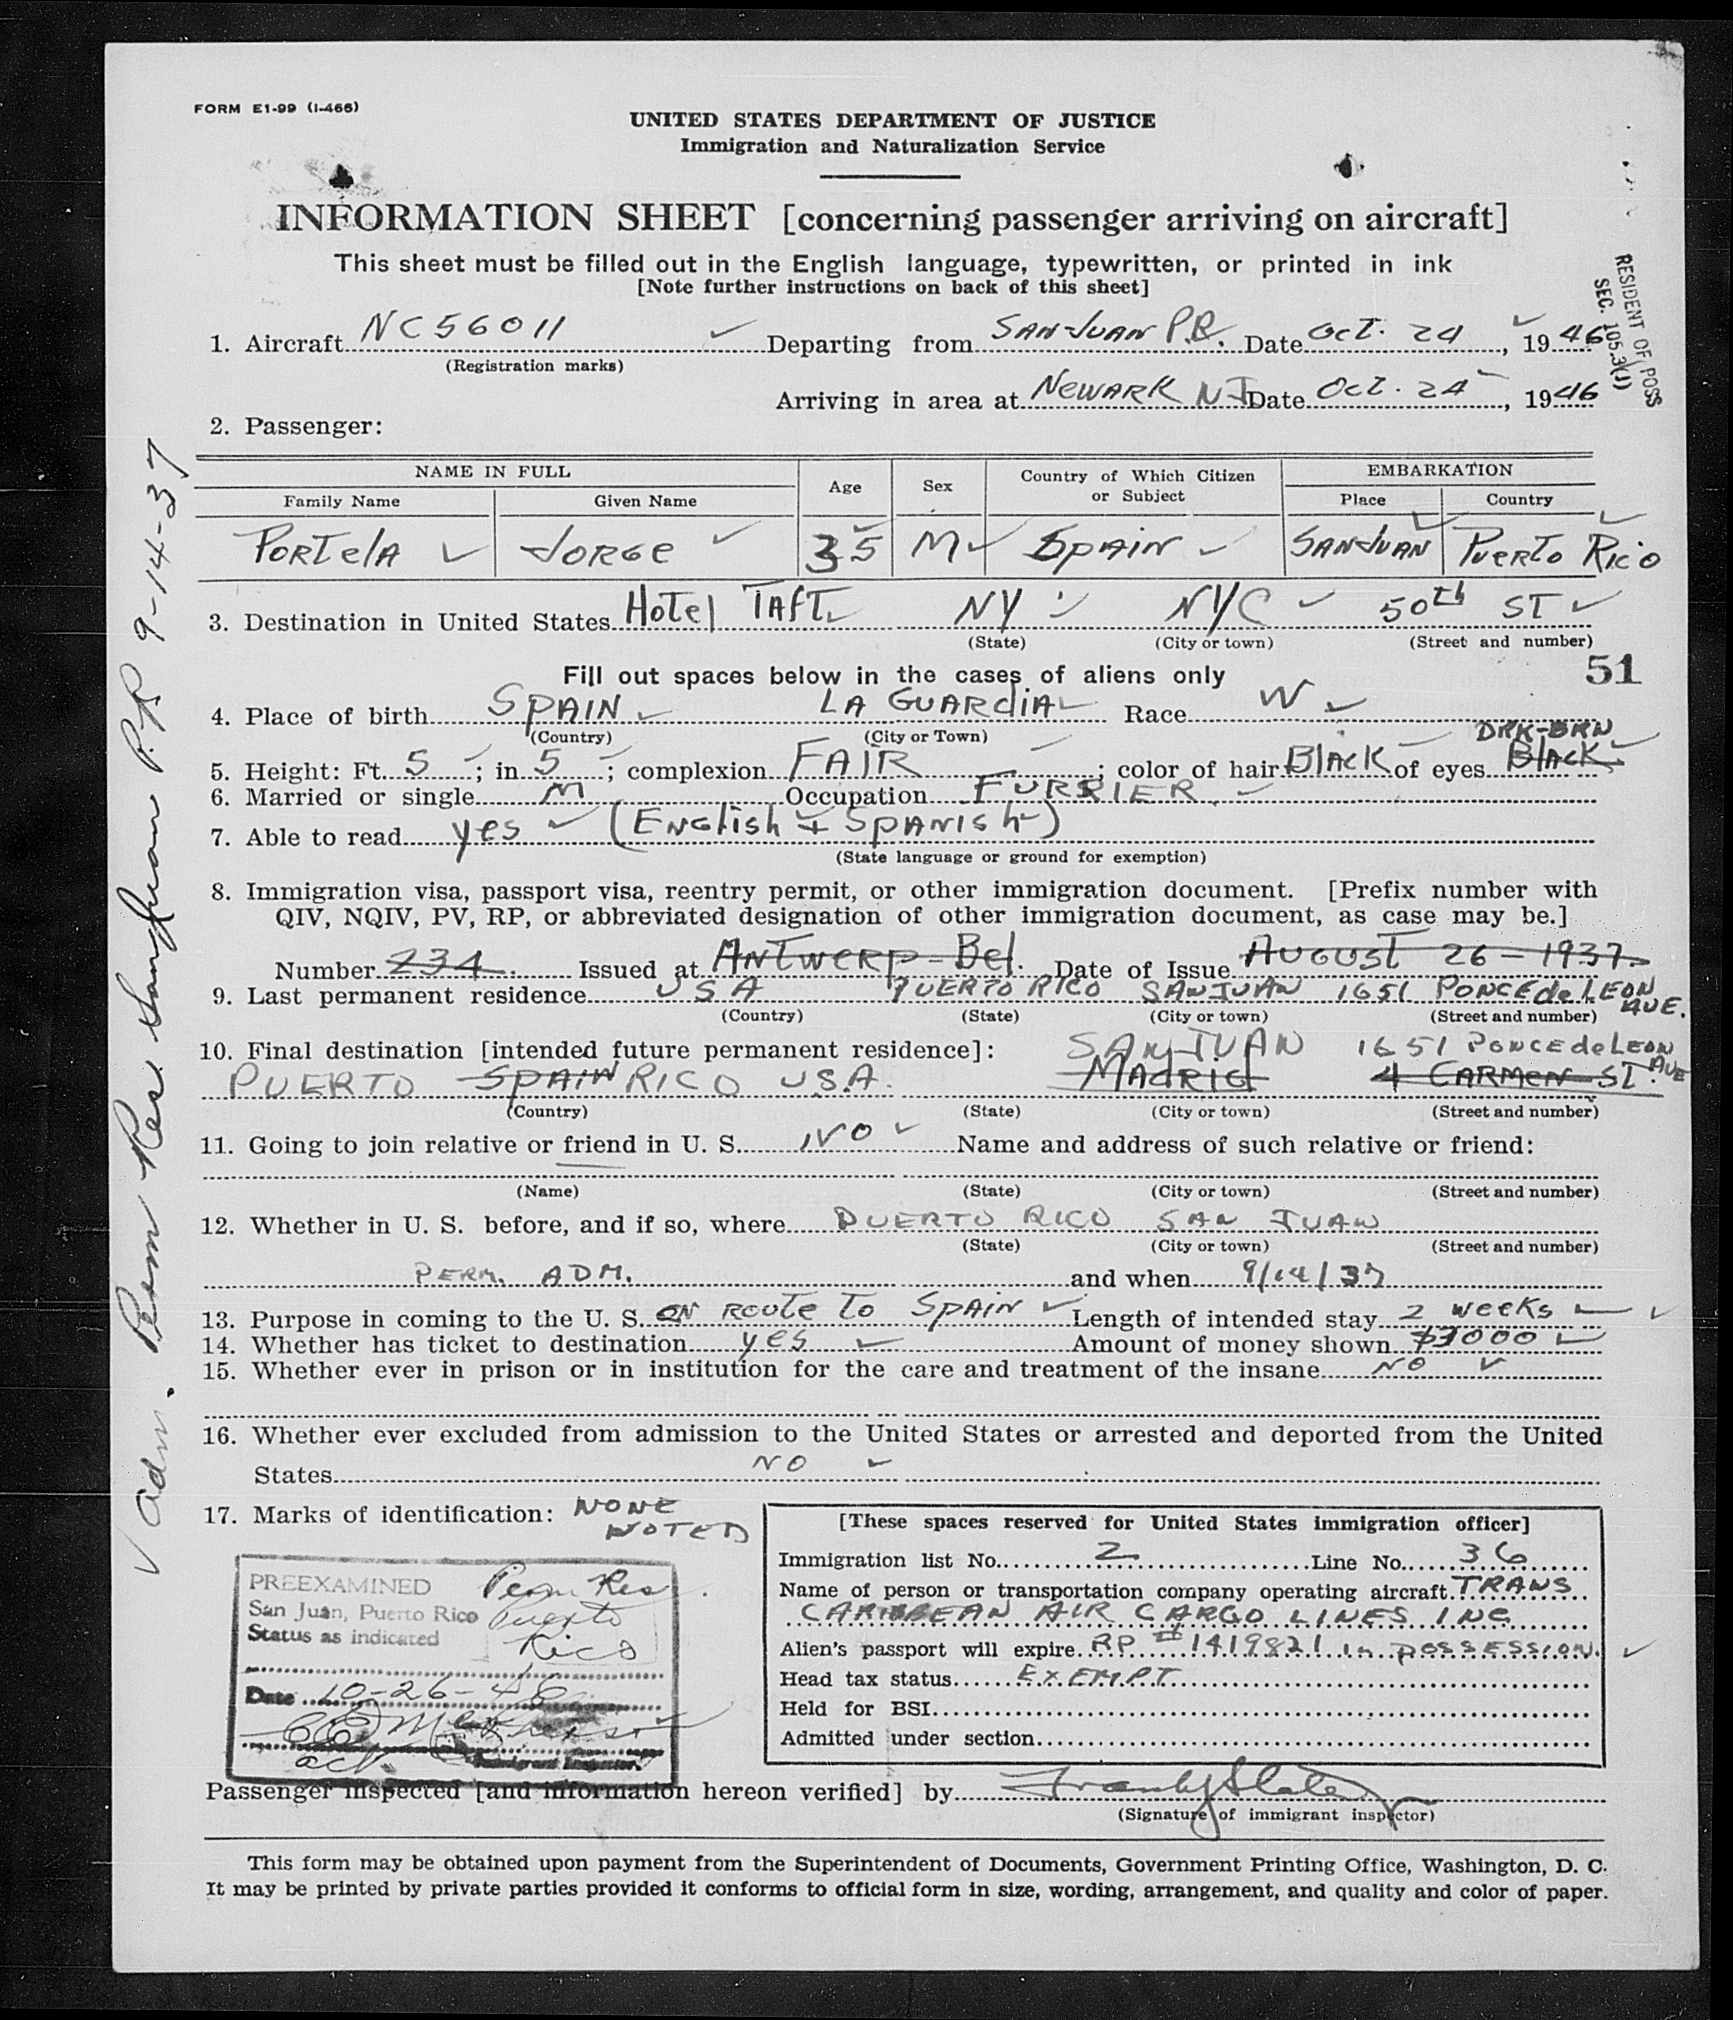 FORM E1-99 (I-466)
UNITED STATES DEPARTMENT OF JUSTICE
Immigration and Naturalization Service
INFORMATION SHEET [concerning passenger arriving on aircraft]
This sheet must be filled out in the English language, typewritten, or printed in ink
[Note further instructions on back of this sheet]
RESIDENT OF POSS
SEC. 105.3(J)
1. Aircraft NC56011 Departing from SAN JUAN P.R. Date Oct. 24, 1946
(Registration marks)
Arriving in area at NEWARK NJ Date Oct. 24, 1946
2. Passenger:
NAME IN FULL Age Sex Country of Which Citizen or Subject EMBARKATION
Family Name Given Name Place Country
PORTELA JORGE 35 M SPAIN SAN JUAN PUERTO RICO
3. Destination in United States Hotel TAFT NY NYC 50th ST
(State) (City or town) (Street and number)
Fill out spaces below in the cases of aliens only 51
4. Place of birth SPAIN LA GUARdiA Race W
(Country) (City or Town)
DRK-BRN
5. Height: Ft. 5; in 5; complexion FAIR; color of hair BlACK of eyes BlACK
6. Married or single M Occupation FURRIER
7. Able to read yes (ENGlish + SPANISh)
(State language or ground for exemption)
8. Immigration visa, passport visa, reentry permit, or other immigration document. [Prefix number with
QIV, NQIV, PV, RP, or abbreviated designation of other immigration document, as case may be.]
Number 234 Issued at ANTWERP-Bel. Date of Issue AUGUST 26-1937
9. Last permanent residence USA PUERTO RICO SAN JUAN 1651 PONCE de LEON AVE.
(Country) (State) (City or town) (Street and number)
10. Final destination [intended future permanent residence]: SAN JUAN 1651 PONCE de LEON AVE
PUERTO SPAIN RICO U.S.A. MADRId 4 CARMEN ST.
(Country) (State) (City or town) (Street and number)
11. Going to join relative or friend in U. S. NO Name and address of such relative or friend:
(Name) (State) (City or town) (Street and number)
12. Whether in U. S. before, and if so, where PUERTO RICO SAN JUAN
(State) (City or town) (Street and number)
PERM. ADM. and when 9/14/37
13. Purpose in coming to the U. S. EN ROUTE TO SPAIN Length of intended stay 2 weeks
14. Whether has ticket to destination yes Amount of money shown $3000
15. Whether ever in prison or in institution for the care and treatment of the insane NO
16. Whether ever excluded from admission to the United States or arrested and deported from the United
States NO
17. Marks of identification: NONE
NOTED
[These spaces reserved for United States immigration officer]
Immigration list No. 2 Line No. 36
Name of person or transportation company operating aircraft TRANS
CARIBBEAN AIR CARGO LINES INC
Alien's passport will expire RP #1419821 in POSSESSION.
Head tax status EXEMPT
Held for BSI
Admitted under section
PREEXAMINED Perm Res.
San Juan, Puerto Rico Puerto
Status as indicated Rico
Date 10-26-46
act. Immigrant Inspector
Passenger inspected [and information hereon verified] by Frank J Slater
(Signature of immigrant inspector)
This form may be obtained upon payment from the Superintendent of Documents, Government Printing Office, Washington, D. C.
It may be printed by private parties provided it conforms to official form in size, wording, arrangement, and quality and color of paper.
Adm. Perm Res. San Juan P.R 9-14-37